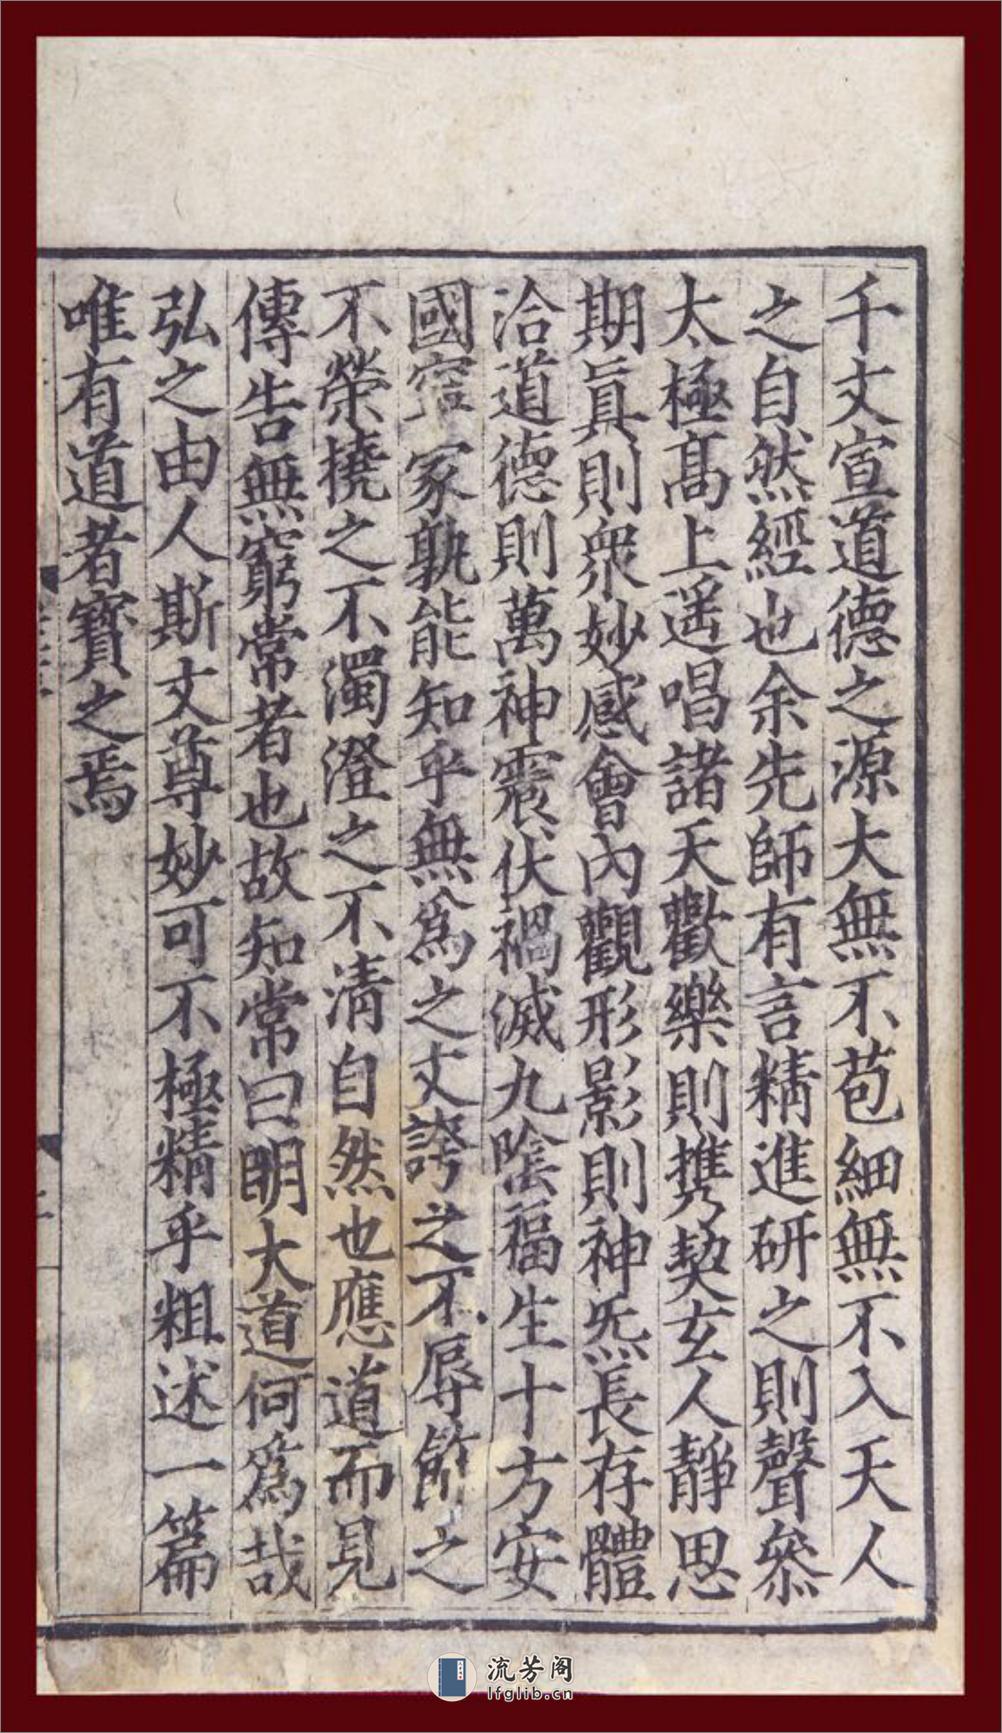 千文宣道德之源大無不苞細無不入天人
之自然經也余先師有言精進研之則聲叅
太極高上遥唱諸天歡樂則携契玄人靜思
期眞則衆妙感會內觀形影則神炁長存體
洽道德則萬神震伏禍滅九陰福生十方安
國寧冢孰能知乎無爲之文誇之不辱餙之
不榮撓之不濁澄之不清自然也應道而見
傳告無窮常者也故知常曰明大道何爲哉
弘之由人斯文尊妙可不極精乎粗述一篇
唯有道者寳之焉
流芳阁
lfglib.cn